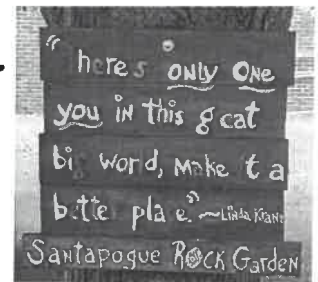 “ here s only one
you in this g eat
bi  wor d, make  t a
b tte  pla e.” ~Linda Kranz
Santapogue Rock Garden